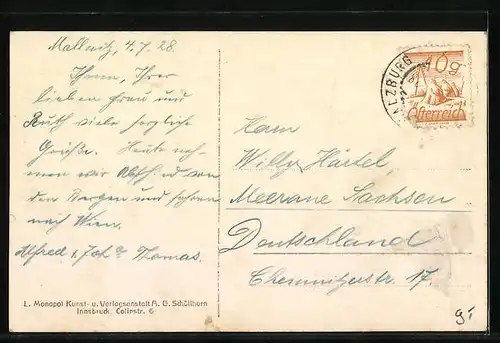 Mallnitz, 4.7.28.
Ihnen, Ihrer
lieben Frau und
Ruth viele herzliche
Grüße. Heute neh-
men wir Absch. von
den Bergen und fahren
nach Wien.
Alfred u. Joh. Thomas.
L. Monopol Kunst- u. Verlagsanstalt A. G. Schöllhorn
Innsbruck, Colinstr. 6
SALZBURG
40g
Österreich
Herrn
Willy Härtel,
Meerane Sachsen
Deutschland
Chemnitzerstr. 17.